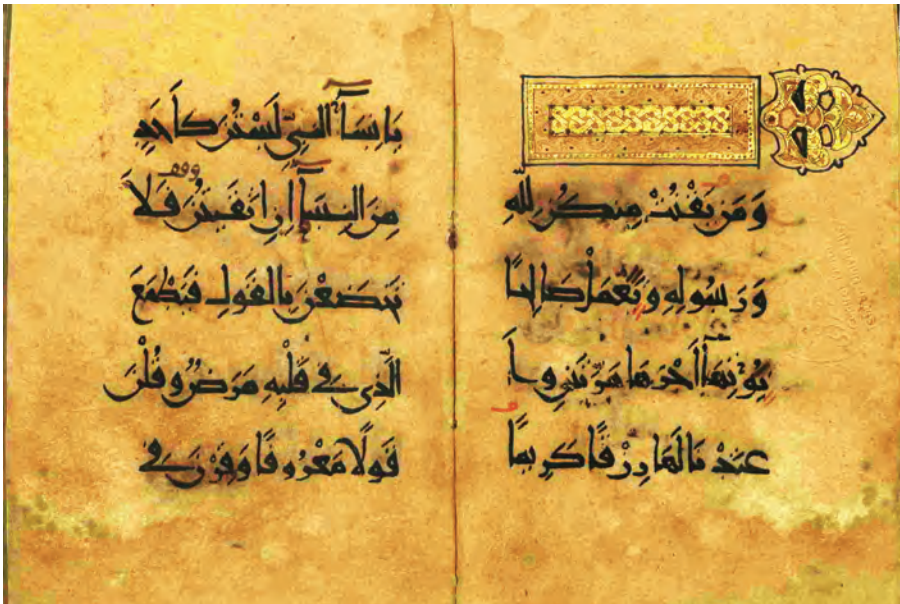 وَمَن يَقْنُتْ مِنكُنَّ لِلّٰهِ
وَرَسُولِهِ وَتَعْمَلْ صَالِحًا
نُؤْتِهَآ أَجْرَهَا مَرَّتَيْنِ وَأَ
عْتَدْنَا لَهَا رِزْقًا كَرِيمًا
يَا نِسَآءَ النَّبِيِّ لَسْتُنَّ كَأَحَدٍ
مِنَ النِّسَآءِ إِنِ اتَّقَيْتُنَّ فَلَا
تَخْضَعْنَ بِالْقَوْلِ فَيَطْمَعَ
الَّذِي فِي قَلْبِهِ مَرَضٌ وَقُلْنَ
قَوْلًا مَعْرُوفًا وَقَرْنَ فِي